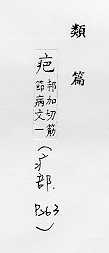 類篇
疤
邦加切筋
節病文一
(疒部.
P263)